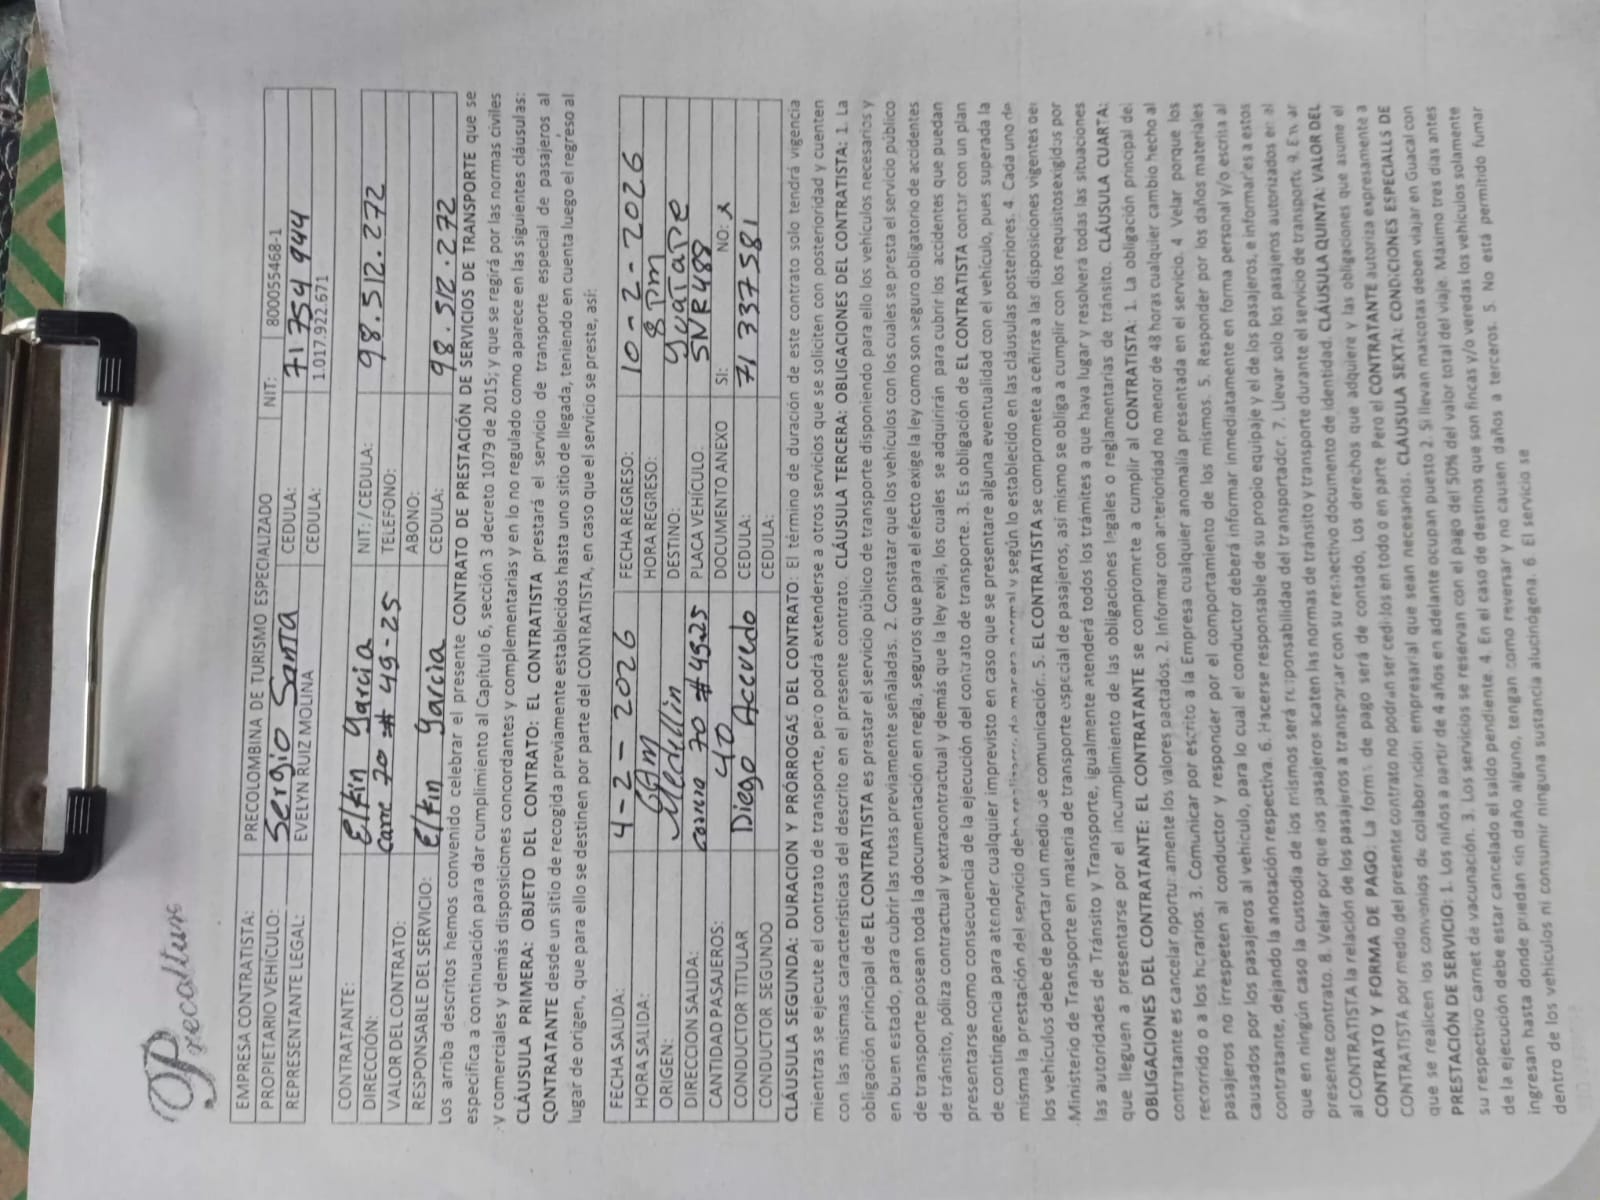 Precolturs
EMPRESA CONTRATISTA: PRECOLOMBINA DE TURISMO ESPECIALIZADO NIT: 800055468-1
PROPIETARIO VEHÍCULO: Sergio Santa CEDULA: 71 754 944
REPRESENTANTE LEGAL: EVELYN RUIZ MOLINA CEDULA: 1.017.922.671
CONTRATANTE: Elkin Garcia NIT: / CEDULA: 98.512.272
DIRECCIÓN: Carre 70 # 49-25 TELEFONO:
VALOR DEL CONTRATO: ABONO:
RESPONSABLE DEL SERVICIO: Elkin Garcia CEDULA: 98.512.272
Los arriba descritos hemos convenido celebrar el presente CONTRATO DE PRESTACIÓN DE SERVICIOS DE TRANSPORTE que se
especifica a continuación para dar cumplimiento al Capitulo 6, sección 3 decreto 1079 de 2015; y que se regirá por las normas civiles
y comerciales y demás disposiciones concordantes y complementarias y en lo no regulado como aparece en las siguientes cláusulas:
CLÁUSULA PRIMERA: OBJETO DEL CONTRATO: EL CONTRATISTA prestará el servicio de transporte especial de pasajeros al
CONTRATANTE desde un sitio de recogida previamente establecidos hasta uno sitio de llegada, teniendo en cuenta luego el regreso al
lugar de origen, que para ello se destinen por parte del CONTRATISTA, en caso que el servicio se preste, así:
FECHA SALIDA: 4-2-2026 FECHA REGRESO: 10-2-2026
HORA SALIDA: 6AM HORA REGRESO: 8 pm
ORIGEN: Medellin DESTINO: Guatape
DIRECCION SALIDA: carrera 70 # 45-25 PLACA VEHÍCULO: SNR488
CANTIDAD PASAJEROS: 40 DOCUMENTO ANEXO SI: NO: x
CONDUCTOR TITULAR Diego Acevedo CEDULA: 71 337 581
CONDUCTOR SEGUNDO CEDULA:
CLÁUSULA SEGUNDA: DURACION Y PRÓRROGAS DEL CONTRATO: El término de duración de este contrato solo tendrá vigencia
mientras se ejecute el contrato de transporte, pero podrá extenderse a otros servicios que se soliciten con posterioridad y cuenten
con las mismas características del descrito en el presente contrato. CLÁUSULA TERCERA: OBLIGACIONES DEL CONTRATISTA: 1. La
obligación principal de EL CONTRATISTA es prestar el servicio público de transporte disponiendo para ello los vehículos necesarios y
en buen estado, para cubrir las rutas previamente señaladas. 2. Constatar que los vehículos con los cuales se presta el servicio público
de transporte posean toda la documentación en regla, seguros que para el efecto exige la ley como son seguro obligatorio de accidentes
de tránsito, póliza contractual y extracontractual y demás que la ley exija, los cuales se adquirirán para cubrir los accidentes que puedan
presentarse como consecuencia de la ejecución del contrato de transporte. 3. Es obligación de EL CONTRATISTA contar con un plan
de contingencia para atender cualquier imprevisto en caso que se presentare alguna eventualidad con el vehículo, pues superada la
misma la prestación del servicio debe realizarse de manera normal y según lo establecido en las cláusulas posteriores. 4. Cada uno de
los vehículos debe de portar un medio de comunicación. 5. EL CONTRATISTA se compromete a ceñirse a las disposiciones vigentes del
Ministerio de Transporte en materia de transporte especial de pasajeros, así mismo se obliga a cumplir con los requisitos exigidos por
las autoridades de Tránsito y Transporte, igualmente atenderá todos los trámites a que haya lugar y resolverá todas las situaciones
que lleguen a presentarse por el incumplimiento de las obligaciones legales o reglamentarias de tránsito. CLÁUSULA CUARTA:
OBLIGACIONES DEL CONTRATANTE: EL CONTRATANTE se compromete a cumplir al CONTRATISTA: 1. La obligación principal del
contratante es cancelar oportunamente los valores pactados. 2. Informar con anterioridad no menor de 48 horas cualquier cambio hecho al
recorrido o a los horarios. 3. Comunicar por escrito a la Empresa cualquier anomalía presentada en el servicio. 4 Velar porque los
pasajeros no irrespeten al conductor y responder por el comportamiento de los mismos. 5. Responder por los daños materiales
causados por los pasajeros al vehículo, para lo cual el conductor deberá informar inmediatamente en forma personal y/o escrita al
contratante, dejando la anotación respectiva. 6. Hacerse responsable de su propio equipaje y el de los pasajeros, e informarles a estos
que en ningún caso la custodia de los mismos será responsabilidad del transportador. 7. Llevar solo los pasajeros autorizados en el
presente contrato. 8. Velar por que los pasajeros acaten las normas de tránsito y transporte durante el servicio de transporte. 9. Enviar
al CONTRATISTA la relación de los pasajeros a transportar con su respectivo documento de identidad. CLÁUSULA QUINTA: VALOR DEL
CONTRATO Y FORMA DE PAGO: La forma de pago será de contado. Los derechos que adquiere y las obligaciones que asume el
CONTRATISTA por medio del presente contrato no podrán ser cedidos en todo o en parte Pero el CONTRATANTE autoriza expresamente a
que se realicen los convenios de colaboración empresarial que sean necesarios. CLÁUSULA SEXTA: CONDICIONES ESPECIALES DE
PRESTACIÓN DE SERVICIO: 1. Los niños a partir de 4 años en adelante ocupan puesto 2. Si llevan mascotas deben viajar en Guacal con
su respectivo carnet de vacunación. 3. Los servicios se reservan con el pago del 50% del valor total del viaje. Máximo tres días antes
de la ejecución debe estar cancelado el saldo pendiente. 4. En el caso de destinos que son fincas y/o veredas los vehículos solamente
ingresan hasta donde puedan sin daño alguno, tengan como reversar y no causen daños a terceros. 5. No está permitido fumar
dentro de los vehículos ni consumir ninguna sustancia alucinógena. 6 El servicio se